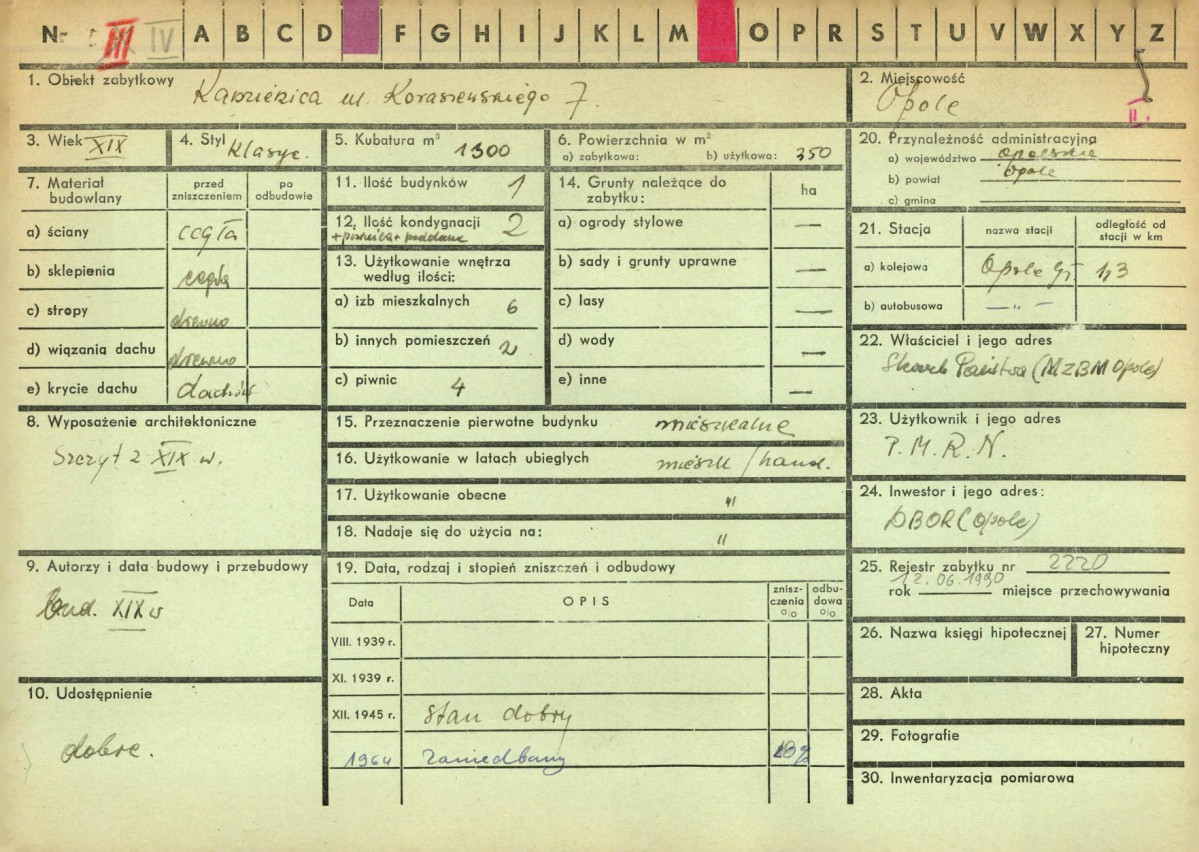 Nr III IV A B C D F G H I J K L M O P R S T U V W X Y Z
1. Obiekt zabytkowy
Kamienica ul. Koraszewskiego 7.
2. Miejscowość
Opole
II.
3. Wiek XIX
4. Styl klasyc.
5. Kubatura m³ 1300
6. Powierzchnia w m²
a) zabytkowa: b) użytkowa: 350
20. Przynależność administracyjna
a) województwo opolskie
b) powiat Opole
c) gmina
7. Materiał budowlany
przed zniszczeniem
po odbudowie
a) ściany cegła
b) sklepienia cegła
c) stropy drewno
d) wiązania dachu drewno
e) krycie dachu dachów
11. Ilość budynków 1
12. Ilość kondygnacji 2
+ piwnica + poddasze
13. Użytkowanie wnętrza
według ilości:
a) izb mieszkalnych 6
b) innych pomieszczeń 2
c) piwnic 4
14. Grunty należące do
zabytku:
ha
a) ogrody stylowe —
b) sady i grunty uprawne —
c) lasy —
d) wody —
e) inne —
21. Stacja
nazwa stacji
odległość od
stacji w km
a) kolejowa Opole Gł 1,3
b) autobusowa — " —
22. Właściciel i jego adres
Skarb Państwa (MZBM Opole)
8. Wyposażenie architektoniczne
Szczyt z XIX w.
15. Przeznaczenie pierwotne budynku mieszkalne
16. Użytkowanie w latach ubiegłych mieszk/hand.
17. Użytkowanie obecne "
18. Nadaje się do użycia na: "
23. Użytkownik i jego adres
P.M.R.N.
24. Inwestor i jego adres:
DBOR (Opole)
9. Autorzy i data budowy i przebudowy
bud. XIX w
10. Udostępnienie
dobre.
19. Data, rodzaj i stopień zniszczeń i odbudowy
Data
OPIS
znisz-
czenia
o/o
odbu-
dowa
o/o
VIII. 1939 r.
XI. 1939 r.
XII. 1945 r. Stan dobry
1964 Zaniedbany
25. Rejestr zabytku nr 2220
12.06.1990
rok miejsce przechowywania
26. Nazwa księgi hipotecznej
27. Numer
hipoteczny
28. Akta
29. Fotografie
30. Inwentaryzacja pomiarowa